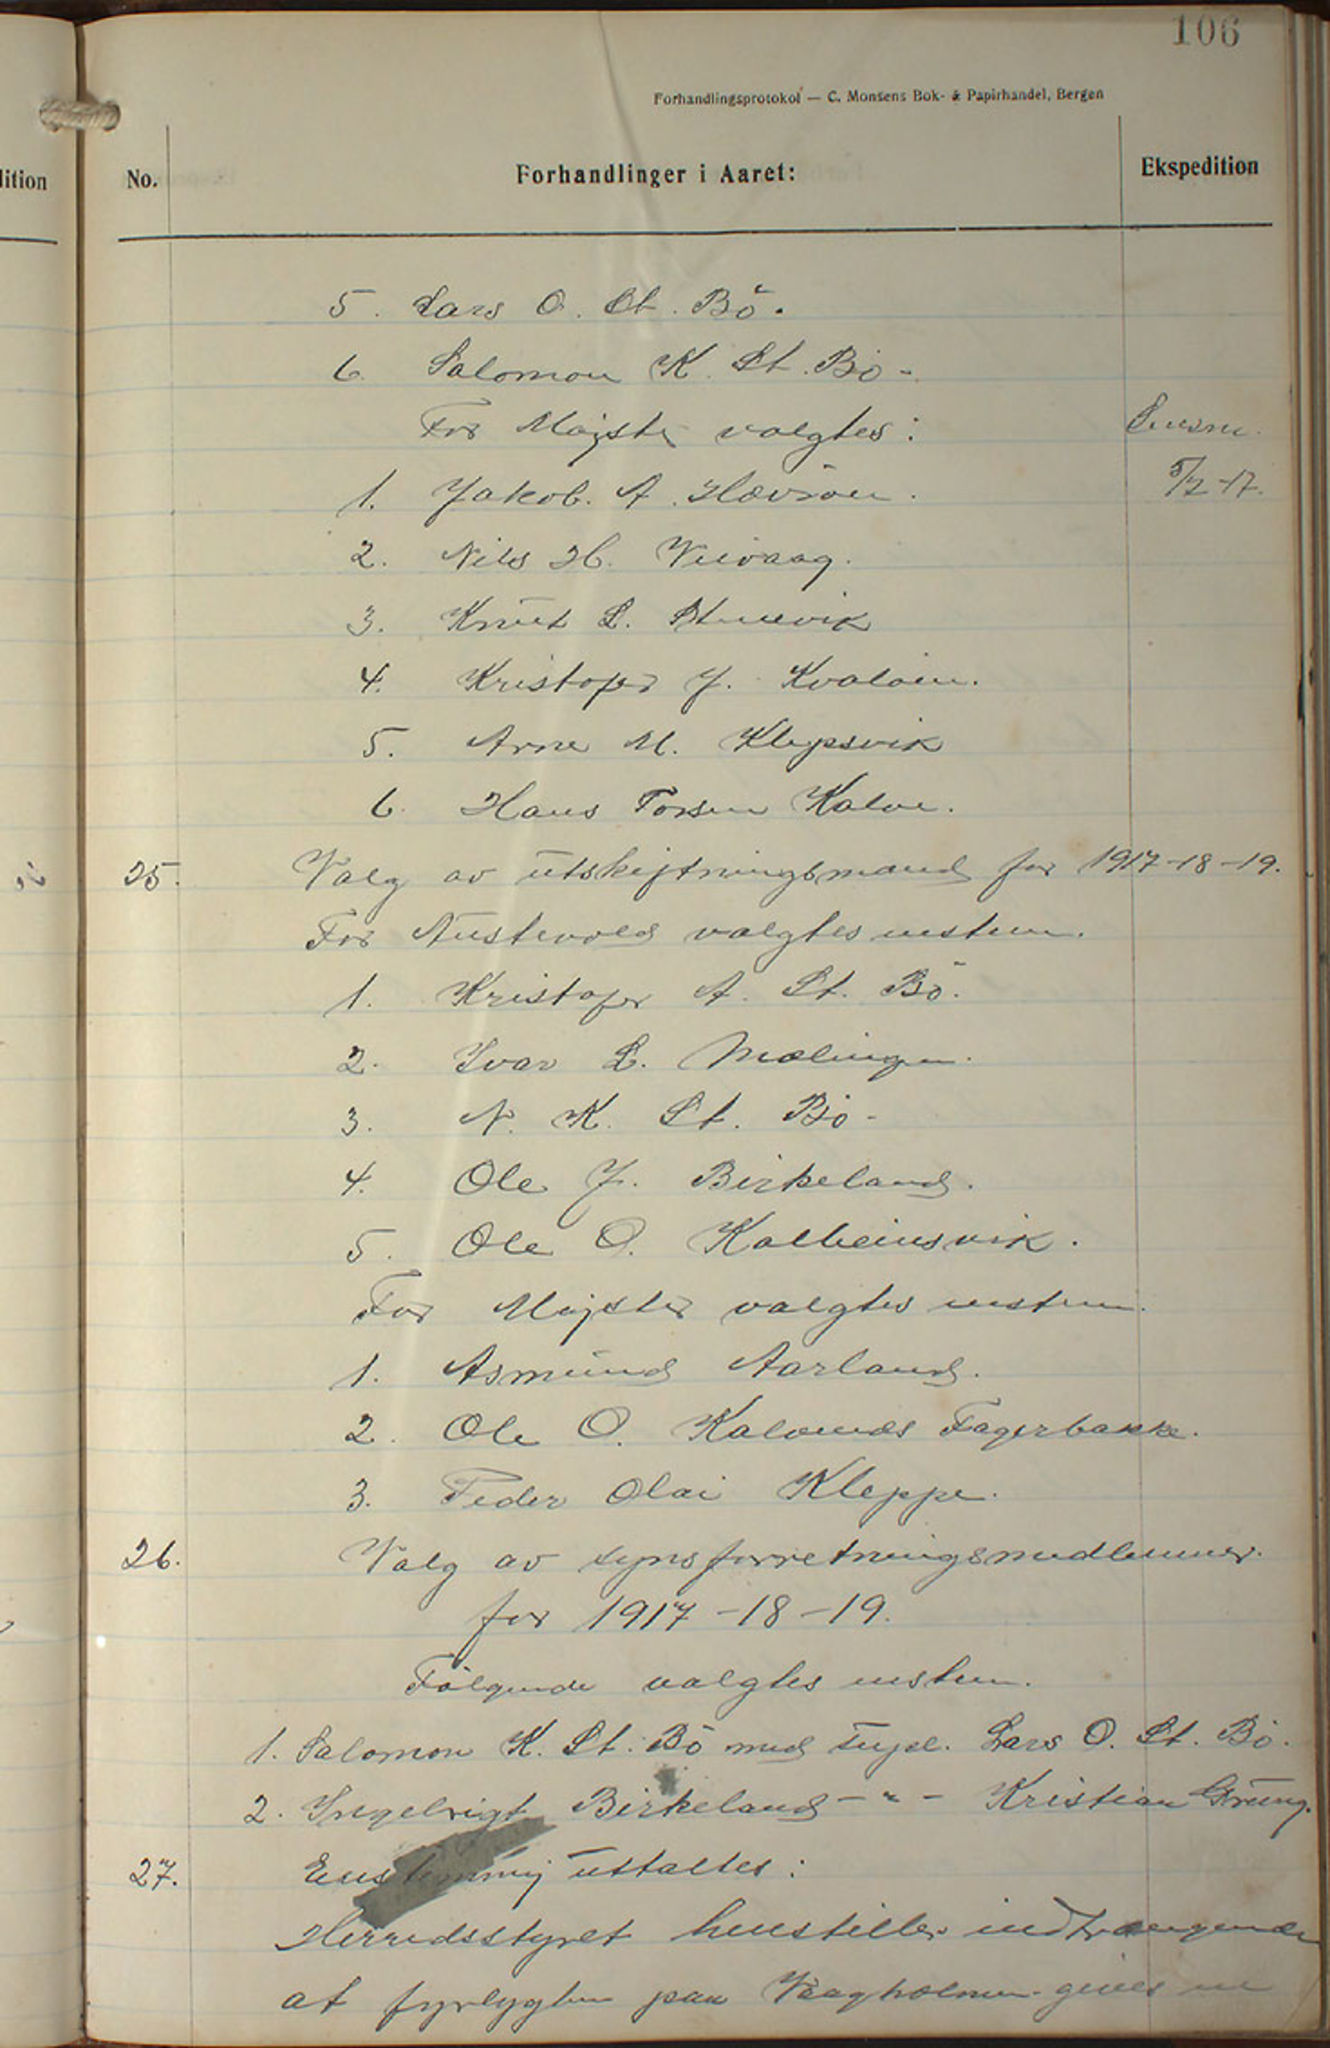 106
Forhandlingsprotokol — C. Monsens Bok- & Papirhandel, Bergen
lition
No.
Forhandlinger i Aaret:
Ekspedition
5. Lars O. St. Bö.
6. Salomon K. St. Bö.
For Møgster valgtes:
1. Jakob. A. Hævröen.
5/2-17.
2. Nils H. Veivaag.
3. Knut L. Stunevik
4. Kristofer J. Kvalöen.
5. Arne M. Klepsvik
6. Hans Torsen Kalve.
25. Valg av utskiftningsmænd for 1917-18-19.
For Austevold valgtes enstem.
1. Kristofer A. St. Bö.
2. Ivar L. Mælingen.
3. N. K. St. Bö
4. Ole J. Birkeland.
5. Ole O. Kolbeinsvik.
For Møgster valgtes enstem.
1. Asmund Aarland.
2. Ole O. Kalvenes Fagerbakke.
3. Peder Olai Kleppe.
26. Valg av synsforretningsmedlemmer.
for 1917-18-19.
Følgende valgtes enstem.
1. Salomon K. St. Bö med supl. Lars O. St. Bö.
2. Ingebrigt Birkeland - " - Kristian Gröeng.
27. Enstemmig uttaltes:
Herredsstyret henstiller indtrængende
at fyrlygten paa Vaagholmen gives en